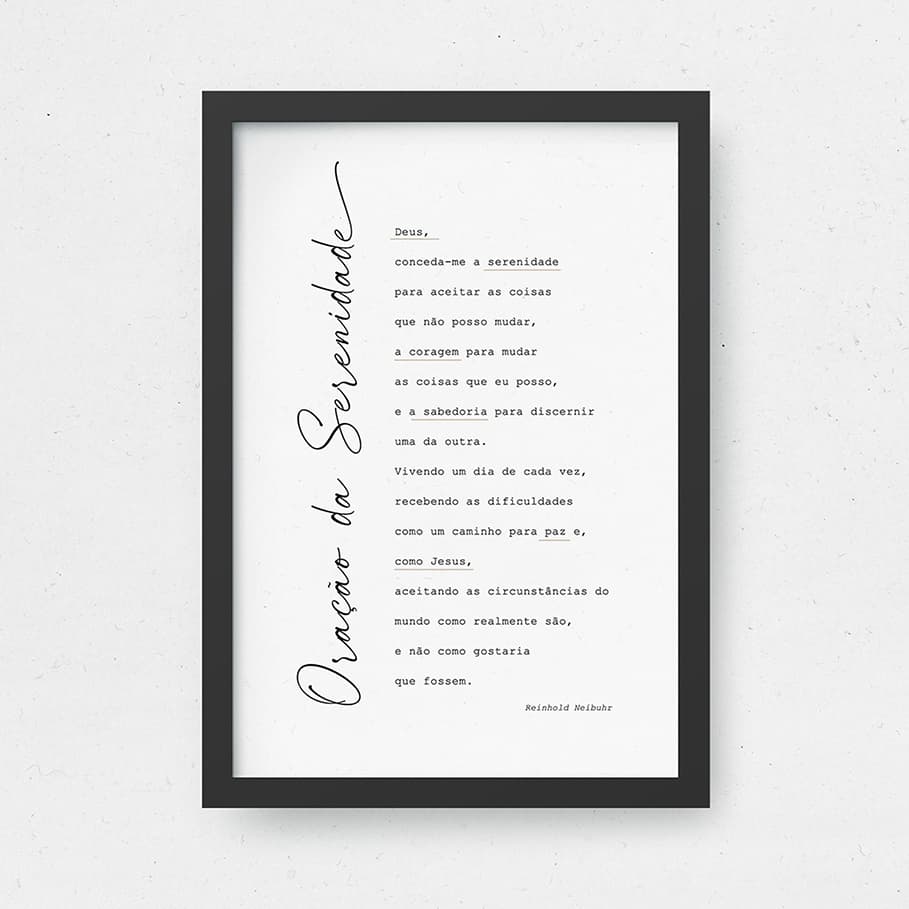 Oração da Serenidade
Deus,
conceda-me a serenidade
para aceitar as coisas
que não posso mudar,
a coragem para mudar
as coisas que eu posso,
e a sabedoria para discernir
uma da outra.
Vivendo um dia de cada vez,
recebendo as dificuldades
como um caminho para paz e,
como Jesus,
aceitando as circunstâncias do
mundo como realmente são,
e não como gostaria
que fossem.
Reinhold Neibuhr